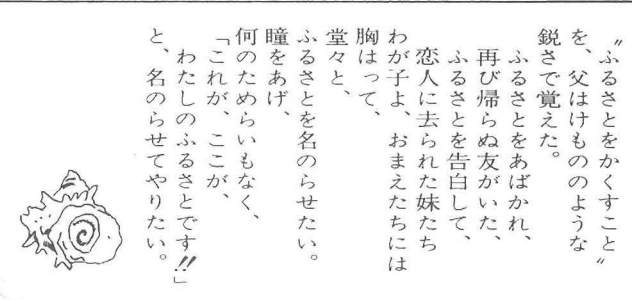 〝ふるさとをかくすこと〟
を、父はけもののような
鋭さで覚えた。
ふるさとをあばかれ、
再び帰らぬ友がいた、
ふるさとを告白して、
恋人に去られた妹たち
わが子よ、おまえたちには
胸はって、
堂々と、
ふるさとを名のらせたい。
瞳をあげ、
何のためらいもなく、
「これが、ここが、
わたしのふるさとです!!」
と、名のらせてやりたい。